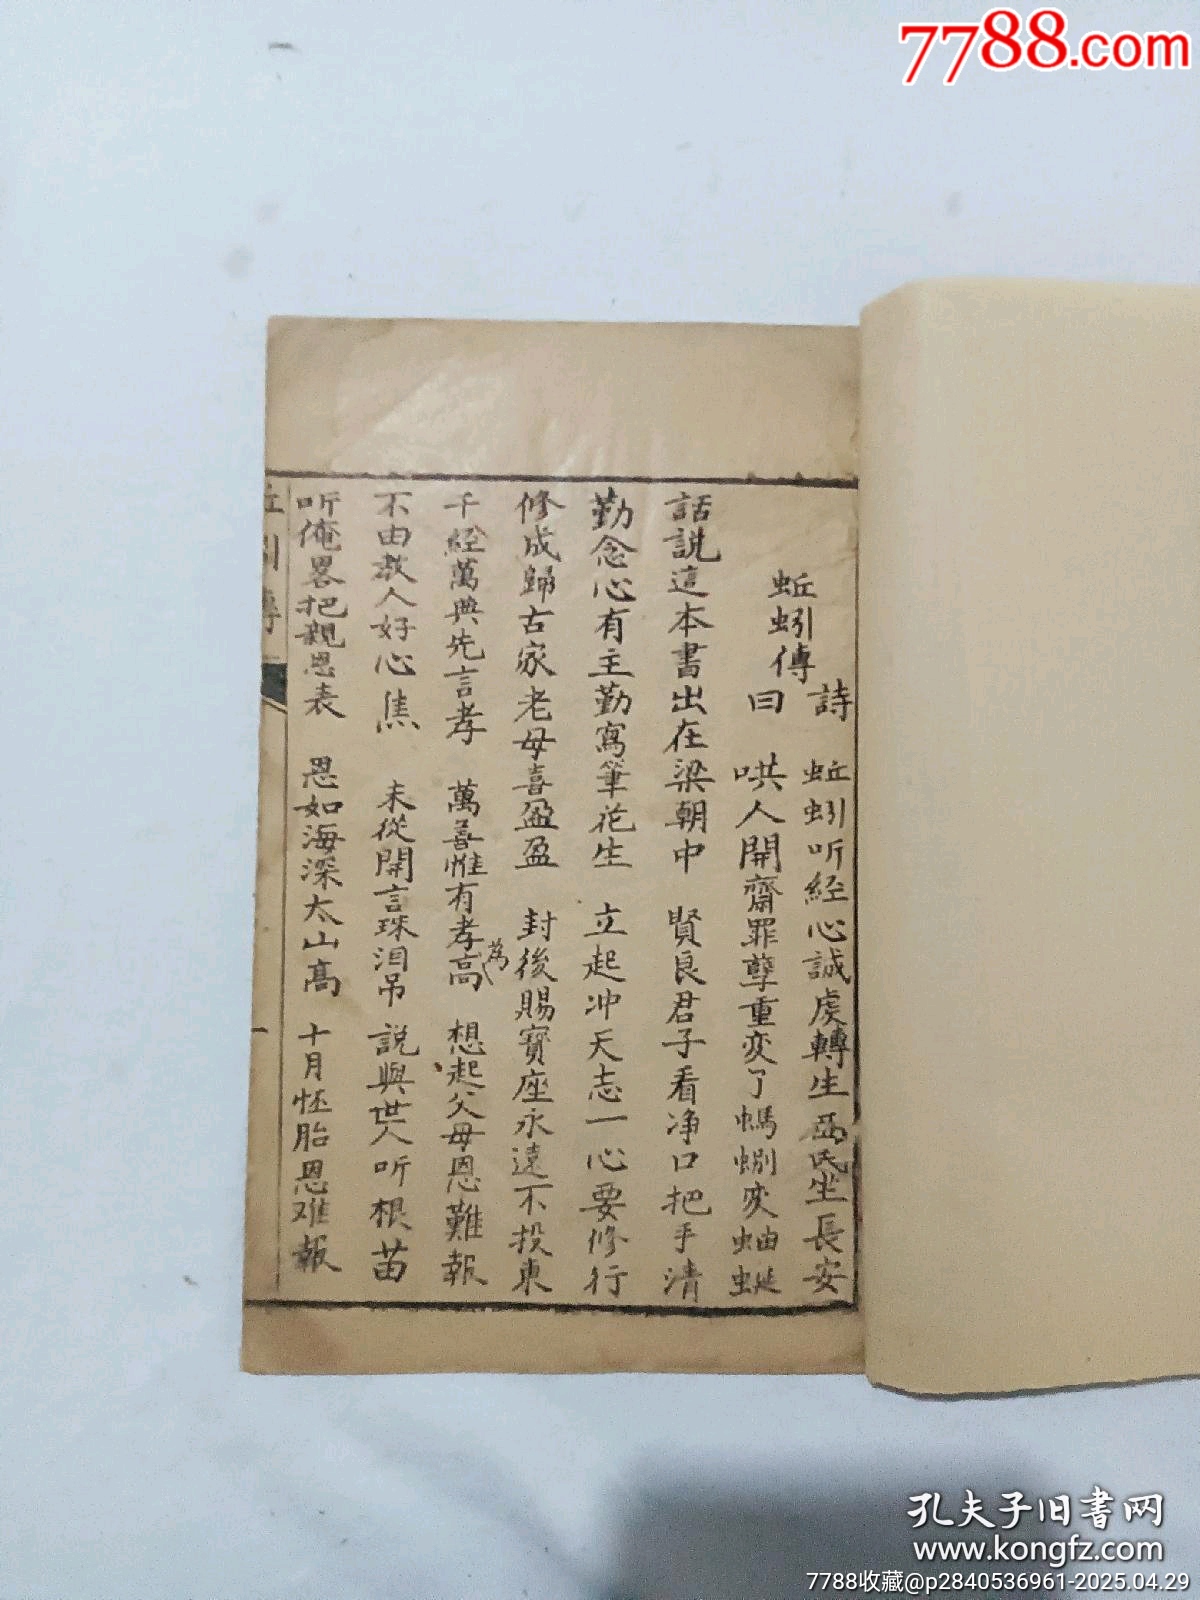 7788.com
蚯蚓傳
詩曰
蚯蚓听经心誠虔轉生郗氏坐長安
哄人開齋罪孽重変了螞蜊変蚰蜒
話説這本書出在梁朝中 賢良君子看净口把手清
勤念心有主勤寫筆花生 立起冲天志一心要修行
修成歸古家老母喜盈盈 封後賜寳座永遠不投東
千経萬典先言孝 萬善惟有孝為高 想起父母恩難報
不由教人好心焦 未從開言珠泪吊 説與世人听根苗
听俺畧把親恩表 恩如海深太山高 十月怀胎恩难報
蚯蚓傳
一
孔夫子旧书网
www.kongfz.com
7788收藏@p2840536961-2025.04.29